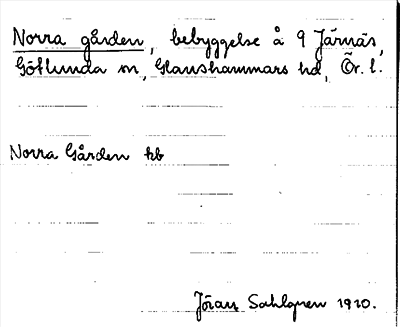 Norra gården, bebyggelse å 9 Järnäs,
Götlunda sn, Glanshammars hd, Ör. l.
Norra Gården kb
Jöran Sahlgren 1920.